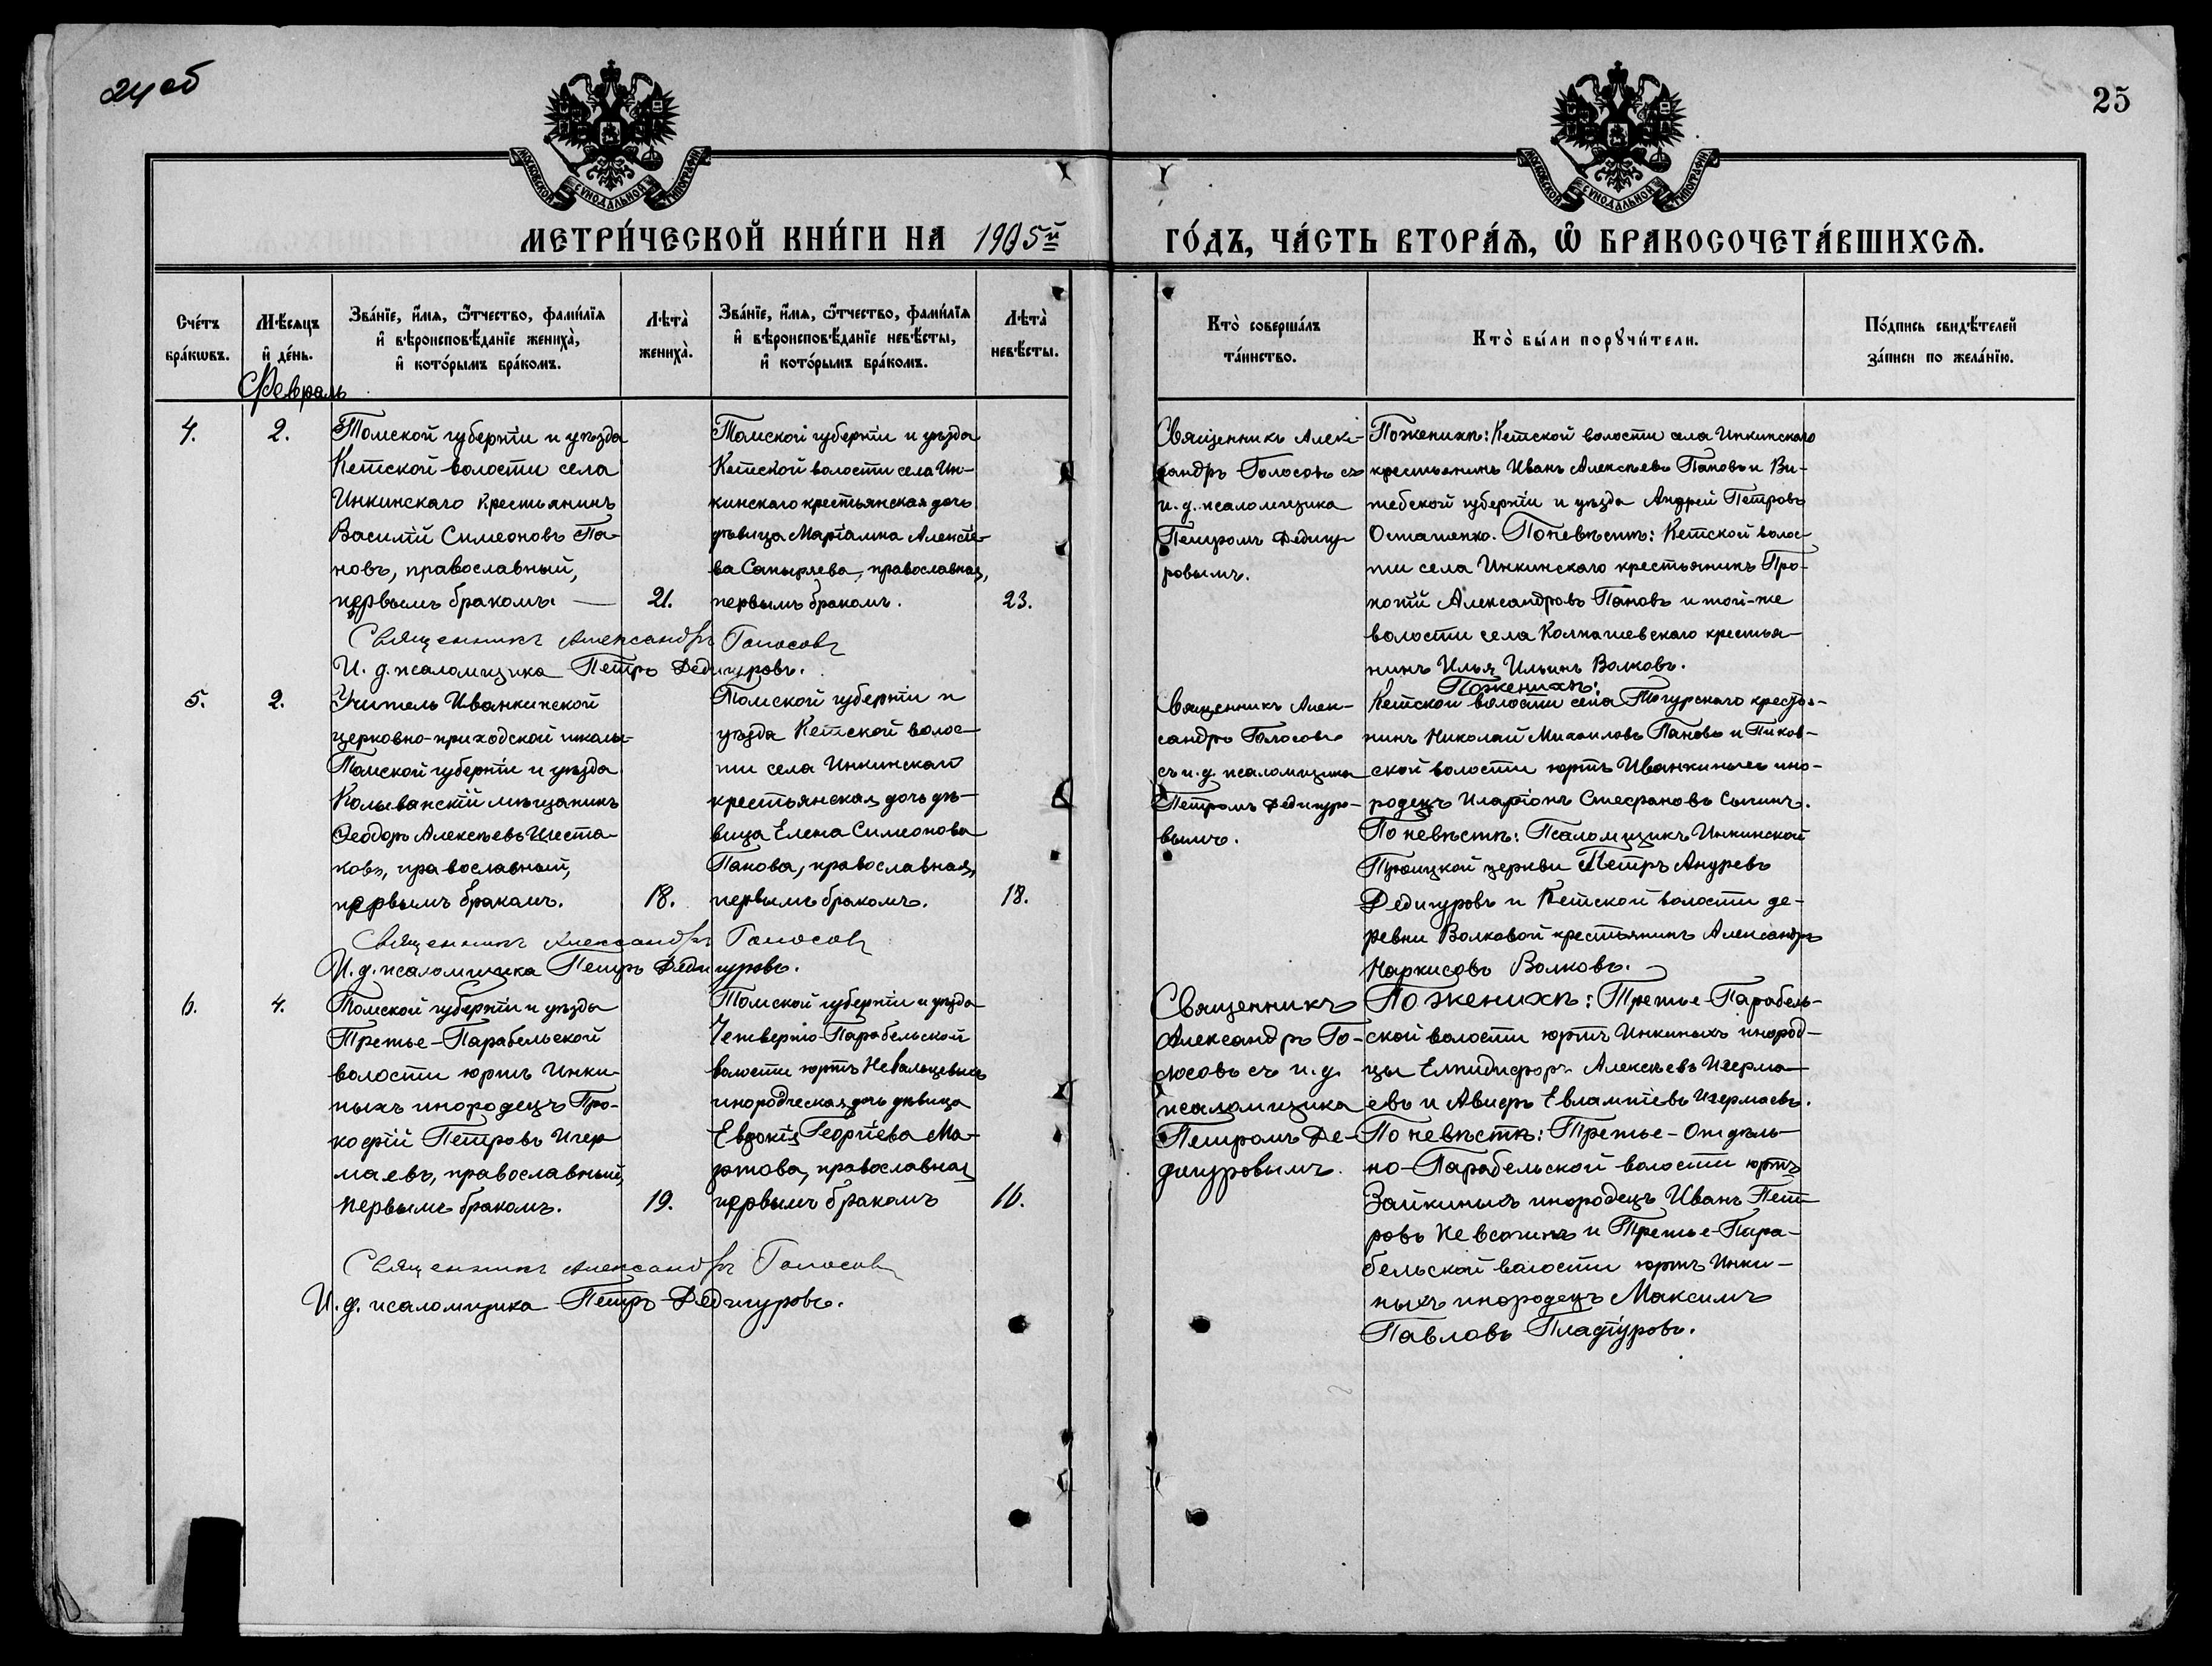 24 об
25
МОСКОВСКОЙ СѴНОДАЛЬНОЙ ТИПОГРАФІИ
МОСКОВСКОЙ СѴНОДАЛЬНОЙ ТИПОГРАФІИ
МЕТРИ́ЧЕСКОЙ КНИ́ГИ НА 1905й
ГО́ДЪ, ЧА́СТЬ ВТОРА́Я, Ѽ БРАКОСОЧЕТА́ВШИХСЯ.
Сче́тъ
бра́кѡвъ.
Мѣ́сяцъ
и҆ де́нь.
Февраль
Зва́нїе, и҆́мя, ѻ҆́тчество, фами́лїя
и҆ вѣроисповѣ́данїе жениха̀,
и҆ кото́рымъ бра́комъ.
Лѣта̀
жениха̀.
Зва́нїе, и҆́мя, ѻ҆́тчество, фами́лїя
и҆ вѣроисповѣ́данїе невѣ́сты,
и҆ кото́рымъ бра́комъ.
Лѣта̀
невѣ́сты.
Кто̀ соверша́лъ
та́инство.
Кто̀ бы́ли порꙋчи́тели.
По́дпись свидѣ́телей
за́писи по жела́нїю.
4.
2.
Томской губерніи и уѣзда
Кетской волости села
Инкинскаго крестьянинъ
Василій Симеоновъ Па-
новъ, православный,
первымъ бракомъ. —
21.
Томской губерніи и уѣзда
Кетской волости села Ин-
кинскаго крестьянская дочь
дѣвица Маріамна Алексѣе-
ва Сапыряева, православная,
первымъ бракомъ.
23.
Священникъ Алек-
сандръ Голосовъ съ
и. д. псаломщика
Петромъ Дедигу-
ровымъ.
По женихѣ: Кетской волости села Инкинскаго
крестьянинъ Иванъ Алексѣевъ Пановъ и Ви-
тебской губерніи и уѣзда Андрей Петровъ
Осташенко. По невѣстѣ: Кетской волос-
ти села Инкинскаго крестьянинъ Про-
копій Александровъ Пановъ и той-же
волости села Колпашевскаго крестья-
нинъ Илья Ильинъ Волковъ.
Священникъ Александръ Голосовъ
И. д. псаломщика Петръ Дедигуровъ.
5.
2.
Учитель Иванкинской
церковно-приходской школы
Томской губерніи и уѣзда
Колыванскій мѣщанинъ
Феодоръ Алексѣевъ Шеста-
ковъ, православный,
первымъ бракомъ.
18.
Томской губерніи и
уѣзда Кетской волос-
ти села Инкинскаго
крестьянская дочь дѣ-
вица Елена Симеонова
Панова, православная,
первымъ бракомъ.
18.
Священникъ Алек-
сандръ Голосовъ
съ и. д. псаломщика
Петромъ Дедигуро-
вымъ.
По женихѣ:
Кетской волости села Тогурскаго крестья-
нинъ Николай Михаиловъ Пановъ и Пиков-
ской волости юртъ Иванкиныхъ ино-
родецъ Иларіонъ Стефановъ Сычинъ.
По невѣстѣ: Псаломщикъ Инкинской
Троицкой церкви Петръ Андреевъ
Дедигуровъ и Кетской волости де-
ревни Волковой крестьянинъ Александръ
Наркисовъ Волковъ.
Священникъ Александръ Голосовъ
И. д. псаломщика Петръ Дедигуровъ.
6.
4.
Томской губерніи и уѣзда
Третье-Парабельской
волости юртъ Инки-
ныхъ инородецъ Про-
кофій Петровъ Ичер
маевъ, православный,
первымъ бракомъ.
19.
Томской губерніи и уѣзда
Четверто-Парабельской
волости юртъ Невальцевыхъ
инородческая дочь дѣвица
Евдокія Георгіева Ма-
ртова, православная
первымъ бракомъ
16.
Священникъ
Александръ Го-
лосовъ съ и. д.
псаломщика
Петромъ Де-
дигуровымъ.
По женихѣ: Третье-Парабель-
ской волости юртъ Инкиныхъ инород-
цы Елпидифоръ Алексѣевъ Ичерма-
евъ и Авиръ Евлампіевъ Ичермаевъ.
По невѣстѣ: Третье-Отдѣль-
но-Парабельской волости юртъ
Зайкиныхъ инородецъ Иванъ Пет
ровъ и Третье-Пара-
бельской волости юртъ Инки-
ныхъ инородецъ Максимъ
Павловъ
Священникъ Александръ Голосовъ
И. д. псаломщика Петръ Дедигуровъ.